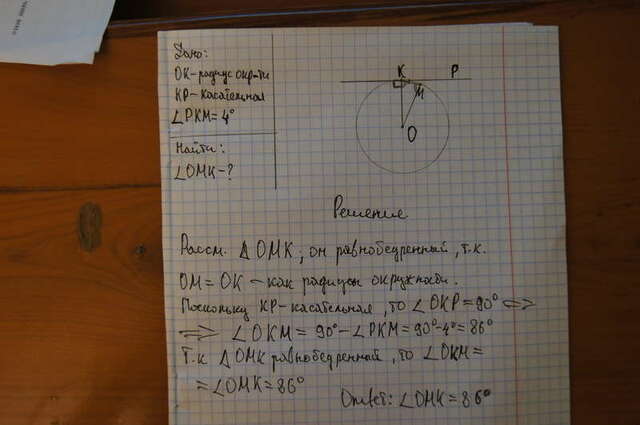 Дано:
OK-радиус окр-ти
KP-касательная
∠PKM=4°
Найти:
∠OMK-?
K P
M
O
Решение
Рассм. △OMK; он равнобедренный, т.к.
OM=OK - как радиусы окружности.
Поскольку KP-касательная, то ∠OKP=90° ⟺
⟹ ∠OKM=90°-∠PKM=90°-4°=86°
Т.к △OMK равнобедренный, то ∠OKM=
=∠OMK=86°
Ответ: ∠OMK=86°